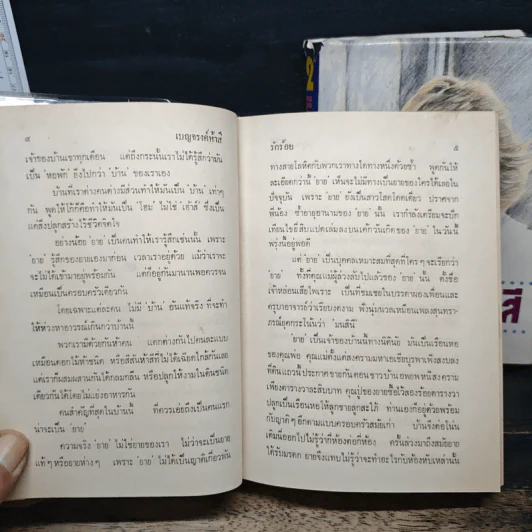 ๔ เบญจรงค์ห้าสี
เจ้าของบ้านเขาทุกเดือน แต่ถึงกระนั้นเราไม่ได้รู้สึกว่ามัน
เป็น 'หอพัก' ยิ่งไปกว่า 'บ้าน' ของเราเอง
บ้านที่เราต่างคนต่างมีส่วนทำให้มันเป็น 'บ้าน' เท่าๆ
กัน พูดให้โก้ก็คือทำให้มันเป็น 'โฮม' ไม่ใช่ 'เฮ้าส์' ซึ่งเป็น
แต่สิ่งปลูกสร้างไร้ชีวิตจิตใจ
อย่างน้อย 'ยาย' เป็นคนทำให้เรารู้สึกเช่นนั้น เพราะ
'ยาย' รู้สึกของยายเองมาก่อน เวลาเราอยู่ด้วย แม้ว่าเราจะ
จะไม่ได้เข้ามาอยู่พร้อมกัน แต่ก็อยู่กันมานานพอควรจน
เหมือนเป็นครอบครัวเดียวกัน
โดยเฉพาะแต่ละคน ไม่มี 'บ้าน' อันแท้จริง ที่จะทำ
ให้ห่วงหาอาวรณ์เกินกว่าบ้านนี้
พวกเรามีด้วยกันห้าคน แตกต่างกันไปคนละแบบ
เหมือนดอกไม้ห้าชนิด หรือสีสันห้าสีที่ไม่ได้เฉียดใกล้กันเลย
แต่เราก็ผสมผสานกันได้กลมกลืน หรือปลูกให้งามในดินชนิด
เดียวกันได้โดยไม่แย่งอาหารกัน
คนสำคัญที่สุดในบ้านนี้ ที่ควรเอ่ยถึงเป็นคนแรก
น่าจะเป็น 'ยาย'
ความจริง 'ยาย' ไม่ใช่ยายของเรา ไม่ว่าจะเป็นยาย
แท้ๆ หรือยายห่างๆ เพราะ 'ยาย' ไม่ได้เป็นญาติเกี่ยวพัน
รักร้อย ๕
ทางสายโลหิตกับพวกเราทางใดทางหนึ่งด้วยซ้ำ พูดกันให้
ละเอียดกว่านี้ 'ยาย' เห็นจะไม่มีทางเป็นยายของใครได้เลยใน
ปัจจุบัน เพราะ 'ยาย' ยังเป็นสาวโสดโดดเดี่ยว ปราศจาก
พี่น้อง ซ้ำอายุอานามของ 'ยาย' นั้น เรากำลังเตรียมจะปัก
เทียนไขยี่สิบแปดเล่มลงบนเค้กวันเกิดของ 'ยาย' ในวันนี้
พรุ่งนี้อยู่พอดี
แต่ 'ยาย' เป็นบุคคลเหมาะสมที่สุดที่ใครๆ จะเรียกว่า
'ยาย' ทั้งที่คุณแม่ผู้ล่วงลับไปแล้วของ 'ยาย' นั้น ตั้งชื่อ
เจ้าหล่อนเสียไพเราะ เป็นที่ชมเชยในบรรดาผองเพื่อนและ
ครูบาอาจารย์ว่าเรียบงดงาม ฟังนุ่มนวลเหมือนเพลงสุนทรา-
ภรณ์ยุคกระโน้นว่า 'มนสินี'
'ยาย' เป็นเจ้าของบ้านนี้ทางนิตินัย มันเป็นเรือนหอ
ของคุณพ่อ คุณแม่ตั้งแต่สงครามมหาเอเชียบูรพาเพิ่งสงบลง
ที่ดินแถวนี้ประกาศขายกันตอนชาวบ้านอพยพหนีสงคราม
เพียงตารางวาละสิบบาท คุณปู่ของยายซื้อไว้สองร้อยตารางวา
ปลูกเป็นเรือนหอให้ลูกชายลูกสะใภ้ ท่านเองก็อยู่ด้วยพร้อม
กับญาติๆ อีกตามแบบครอบครัวสมัยเก่า บ้านจึงต่อโน่น
เติมนี่ออกไปไม่รู้ว่ากี่ห้องต่อกี่ห้อง ครั้นล่วงมาถึงสมัยยาย
ได้รับมรดก ยายจึงแทบไม่รู้ว่าจะทำอะไรกับห้องหับเหล่านั้น